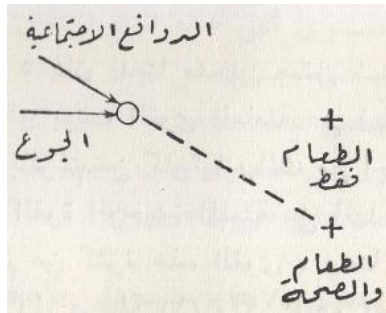 الدوافع الاجتماعية
الجوع
+
الطعام
فقط
+
الطعام
والصحة